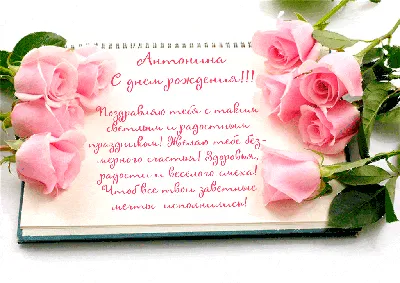 Антонина
С днем рождения!!!
Поздравляю тебя с таким
светлым и радостным
праздником! Желаю тебе без-
мерного счастья! Здоровья,
радости и веселого смеха!
Чтоб все твои заветные
мечты исполнились!